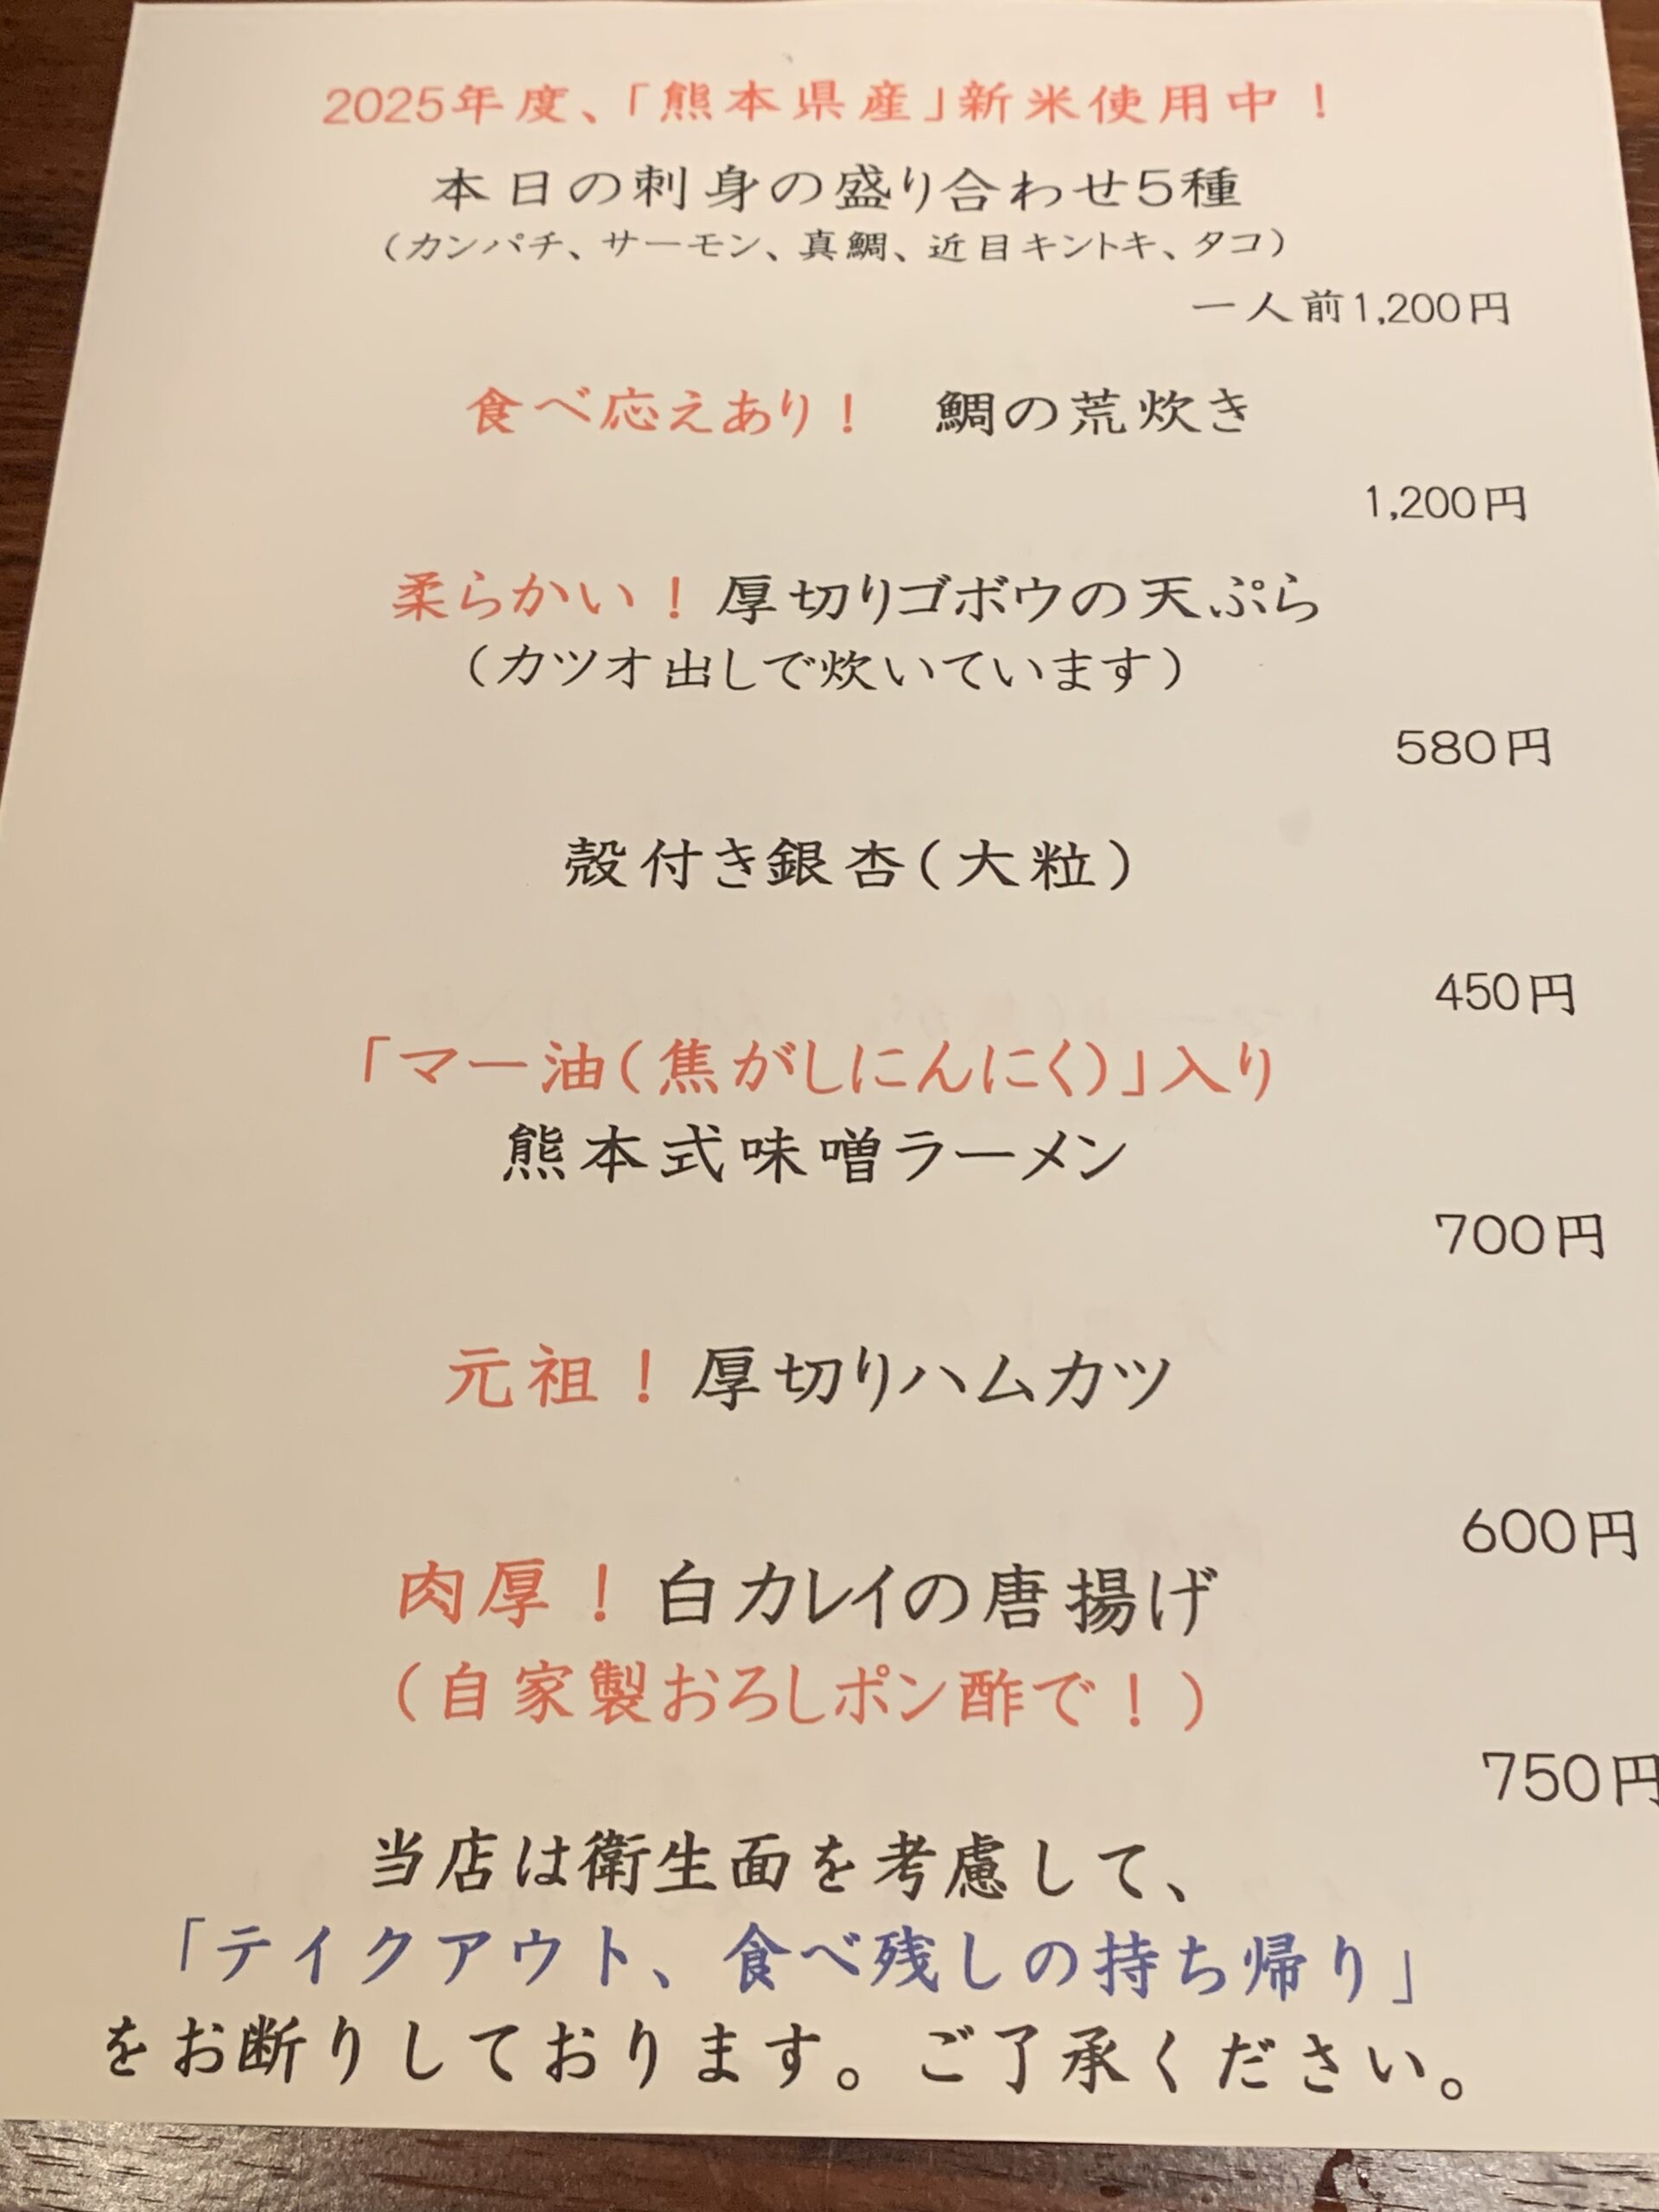 2025年度、「熊本県産」新米使用中！
本日の刺身の盛り合わせ5種
（カンパチ、サーモン、真鯛、近目キントキ、タコ）
一人前1,200円
食べ応えあり！　鯛の荒炊き
1,200円
柔らかい！厚切りゴボウの天ぷら
（カツオ出しで炊いています）
580円
殻付き銀杏（大粒）
450円
「マー油（焦がしにんにく）」入り
熊本式味噌ラーメン
700円
元祖！厚切りハムカツ
600円
肉厚！白カレイの唐揚げ
（自家製おろしポン酢で！）
750円
当店は衛生面を考慮して、
「テイクアウト、食べ残しの持ち帰り」
をお断りしております。ご了承ください。